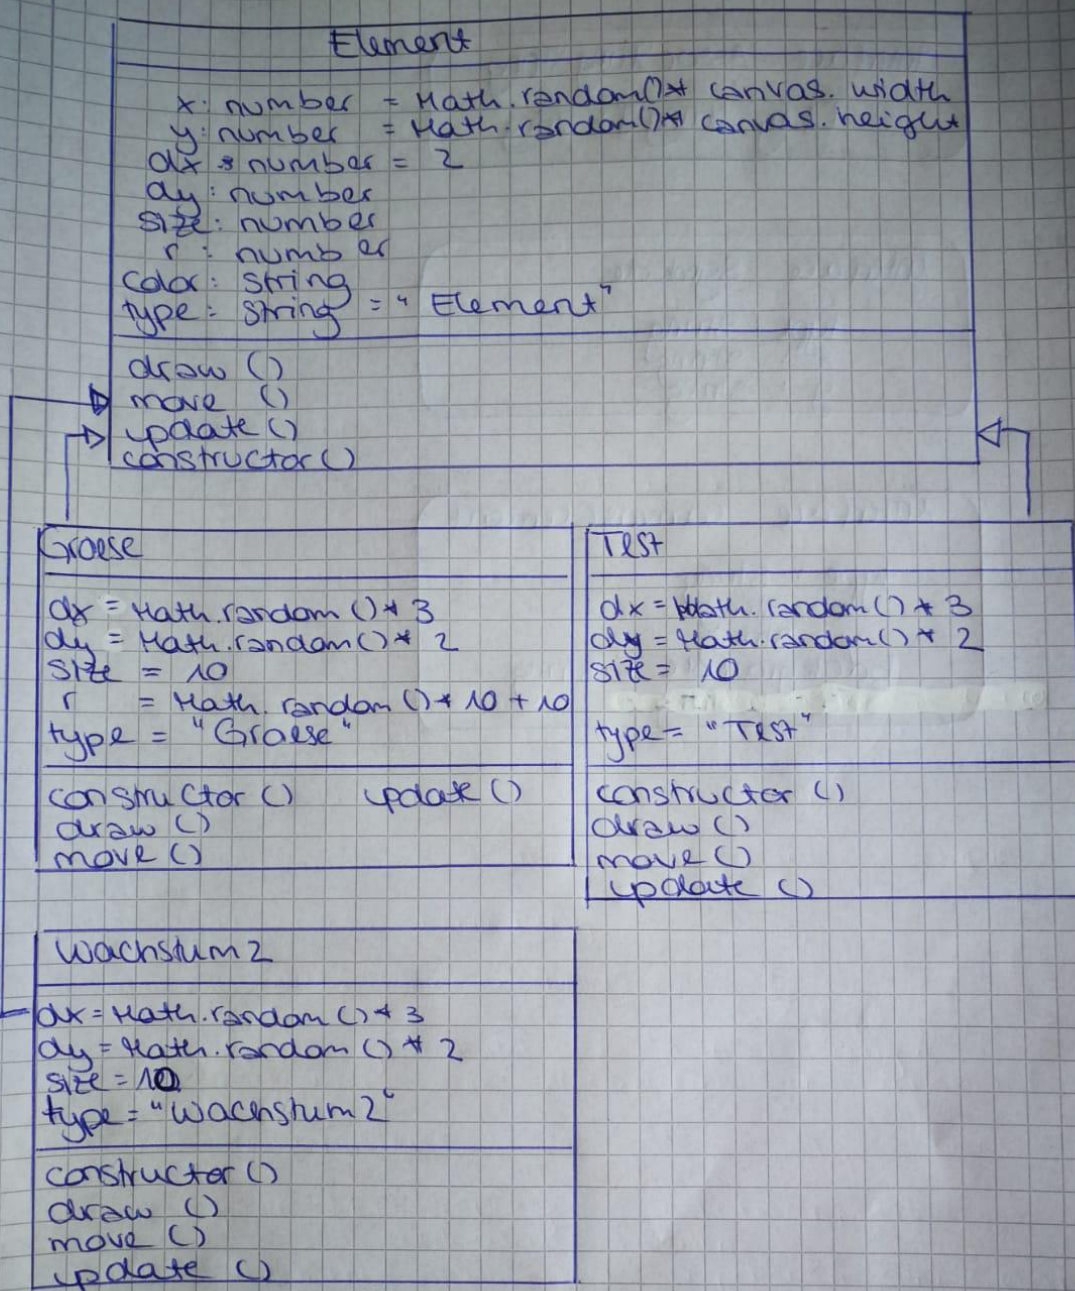 Element
x: number = Math.random()* canvas.width
y: number = Math.random()* canvas.height
dx: number = 2
dy: number
size: number
r: number
color: string
type: string = "Element"
draw ()
move ()
update ()
constructor ()
Graese
dx = Math.random () * 3
dy = Math.random () * 2
size = 10
r = Math.random () * 10 + 10
type = "Graese"
constructor () update ()
draw ()
move ()
Test
dx = Math.random () * 3
dy = Math.random () * 2
size = 10
type = "Test"
constructor ()
draw ()
move ()
update ()
Wachstum2
dx = Math.random () * 3
dy = Math.random () * 2
size = 10
type = "Wachstum2"
constructor ()
draw ()
move ()
update ()